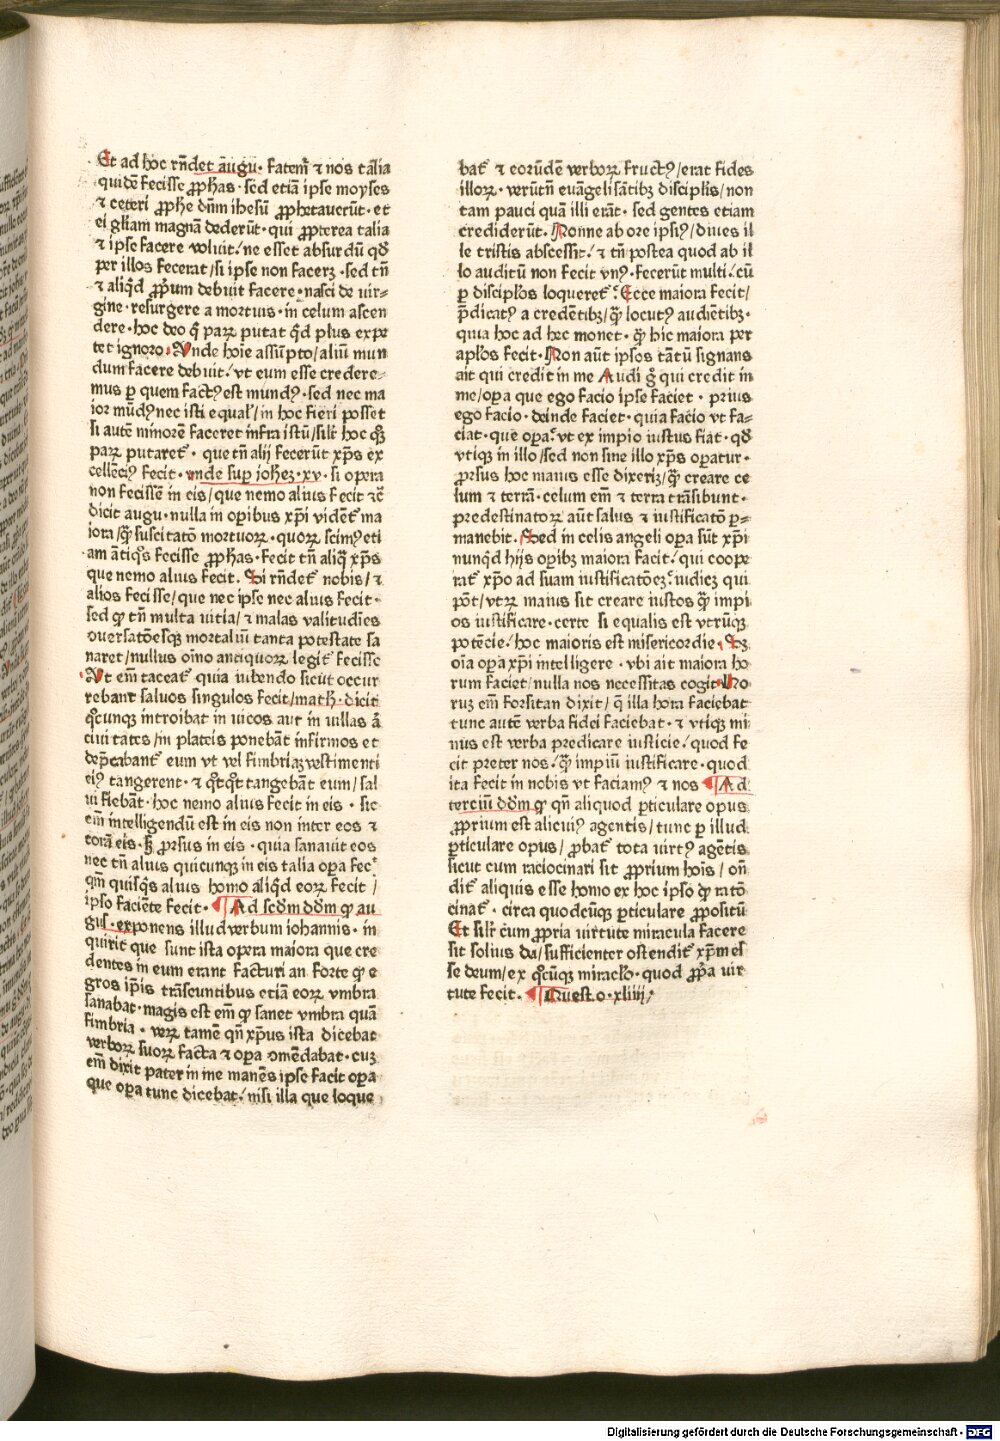 Et ad hoc rn̄det augu. fatem̄ ⁊ nos talia
quidē fecisse ꝓphas · sed etiā ipse moyses
⁊ ceteri ꝓphe dn̄m ihesū ꝓphetauerūt · et
ei gl̄iam magnā dederūt · qui ꝓpterea talia
⁊ ipse facere voluit / ne esset absurdū qđ
per illos fecerat / si ipse non facerꝫ · sed tn̄
⁊ aliqd̄ ꝓp̄um debuit facere · nasci de vir⸗
gine · resurgere a mortuis · in celum ascen
dere · hoc deo q̄ parꝫ putat qd̄ plus expe
tet ignoro. Vnde hoīe assūpto / aliū mun
dum facere debuit / vt eum esse credere⸗
mus ꝑ quem factꝰ est mundꝰ · sed nec ma
ior mūdꝰ nec isti equal̓ / in hoc fieri posset
si autē minorē faceret infra istū / sil̓r hoc qꝫ
parꝫ putaret̄ · que tn̄ alij fecerūt xp̄s ex
cellēciꝰ fecit · vnde sup̄ iohēꝫ · xv · si opera
non fecissē in eis / que nemo alius fecit ⁊c̄
dicit augu · nulla in opibus xp̄i vident̄ ma
iora / qͣꝫ suscitatō mortuoꝝ · quoꝝ scimꝰ eti
am ātiqͦs fecisse ꝓphas · fecit tn̄ aliqͣ xp̄s
que nemo alius fecit. Si rn̄det̄ nobis / ⁊
alios fecisse / que nec ipse nec alius fecit ·
sed ꝙ tn̄ multa vitia / ⁊ malas valitudīes
ꝯuersatōesqꝫ mortaliū tanta potestate sa
naret / nullus oīno antiquoꝝ legit̄ fecisse
Vt em̄ taceat̄ quia iubendo sicut occur
rebant saluos singulos fecit / math · dicit
qͦcunqꝫ introibat in vicos aut in villas ā
ciuitates / in plateis ponebāt infirmos et
dep̄cabant̄ eum vt vel fimbriaꝫ vestimenti
eiꝰ tangerent · ⁊ qͦtqͦt tangebāt eum / sal
ui fiebāt · hoc nemo alius fecit in eis · sic
em̄ intelligendū est in eis non inter eos ⁊
corā eis · sꝫ ꝓrsus in eis · quia sanauit eos
nec tn̄ alius quicunqꝫ in eis talia oꝑa fec̄
qm̄ quisqͥs alius homo aliqd̄ eoꝝ fecit /
ipso faciēte fecit · ¶ Ad scd̄m dd̄m ꝙ au
gus · exponens illud verbum iohannis · in
quirit que sunt ista opera maiora que cre
dentes in eum erant facturi an forte qͥ e
gros ip̄is trāseuntibus etiā eoꝝ vmbra
sanabat · magis est em̄ ꝙ sanet vmbra quā
fimbria · veꝝ tamē qn̄ xp̄us ista dicebat
verboꝝ suoꝝ facta ⁊ oꝑa ꝯmendabat · cuꝫ
em̄ dixit pater in me manēs ipse facit oꝑa
que oꝑa tunc dicebat / nisi illa que loque
bat̄ ⁊ eorūdē verboꝝ fructꝰ / erat fides
illoꝝ · verūtn̄ euāgelisātibꝫ discipl̓is / non
tam pauci quā illi erāt · sed gentes etiam
crediderūt. Nonne ab ore ipsiꝰ / diues il
le tristis abscessit / ⁊ tn̄ postea quod ab il
lo auditū non fecit vnꝰ · fecerūt multi / cū
ꝑ discipl̓os loqueret̄. Ecce maiora fecit /
p̄dicatꝰ a credētibꝫ / qͣꝫ locutꝰ audiētibꝫ ·
quia hoc ad hec monet · qͣꝫ hic maiora per
apl̓os fecit · Non aūt ipsos tātū signans
ait qui credit in me Audi g̊ qui credit in
me / oꝑa que ego facio ipse faciet · prius
ego facio · deinde faciet · quia facio vt fa⸗
ciat · que oꝑa / vt ex impio iustus fiat · qđ
vtiqꝫ in illo / sed non sine illo xp̄s oꝑatur ·
ꝓrsus hoc maius esse dixeriꝫ / qͣꝫ creare ce
lum ⁊ terrā · celum em̄ ⁊ terra trāsibunt ·
predestinatoꝝ aūt salus ⁊ iustificatō ꝑ⸗
manebit. Sed in celis angeli oꝑa sūt xp̄i
nunqd̄ hijs oꝑibꝫ maiora facit / qui coope
rat̄ xp̄o ad suam iustificatōeꝫ / iudiceꝫ qui
pōt / vtꝝ maius sit creare iustos qͣꝫ impi
os iustificare · certe si equalis est vtrūqꝫ
potēcie / hoc maioris est misericordie · Sꝫ
oīa oꝑa xp̄i intelligere · vbi ait maiora ho
rum faciet / nulla nos necessitas cogit. Ho
ruꝫ em̄ forsitan dixit / q̄ illa hora faciebat
tunc autē verba fidei faciebat · ⁊ vtiqꝫ mi
nus est verba predicare iusticie / quod fe
cit preter nos / qͣꝫ impiū iustificare · quod
ita fecit in nobis vt faciamꝰ ⁊ nos ¶ Ad
terciū dd̄m ꝙ qn̄ aliquod ꝑticulare opus
ꝓprium est alicuiꝰ agentis / tunc ꝑ illud
ꝑticulare opus / ꝓbat̄ tota virtꝰ agētis
sicut cum raciocinari sit ꝓprium hoīs / on̄
dit̄ aliquis esse homo ex hoc ipso ꝙ ratō
cinat̄ · circa quodcūqꝫ ꝑticulare ꝓpositū
Et sil̓r cum ꝓpria virtute miracula facere
sit solius dei / sufficienter ostendit̄ xp̄m es
se deum / ex qͦcūqꝫ miracl̓o · quod ꝓp̄a vir
tute fecit. ¶ Quest.o · xliiij /
Digitalisierung gefördert durch die Deutsche Forschungsgemeinschaft - DFG